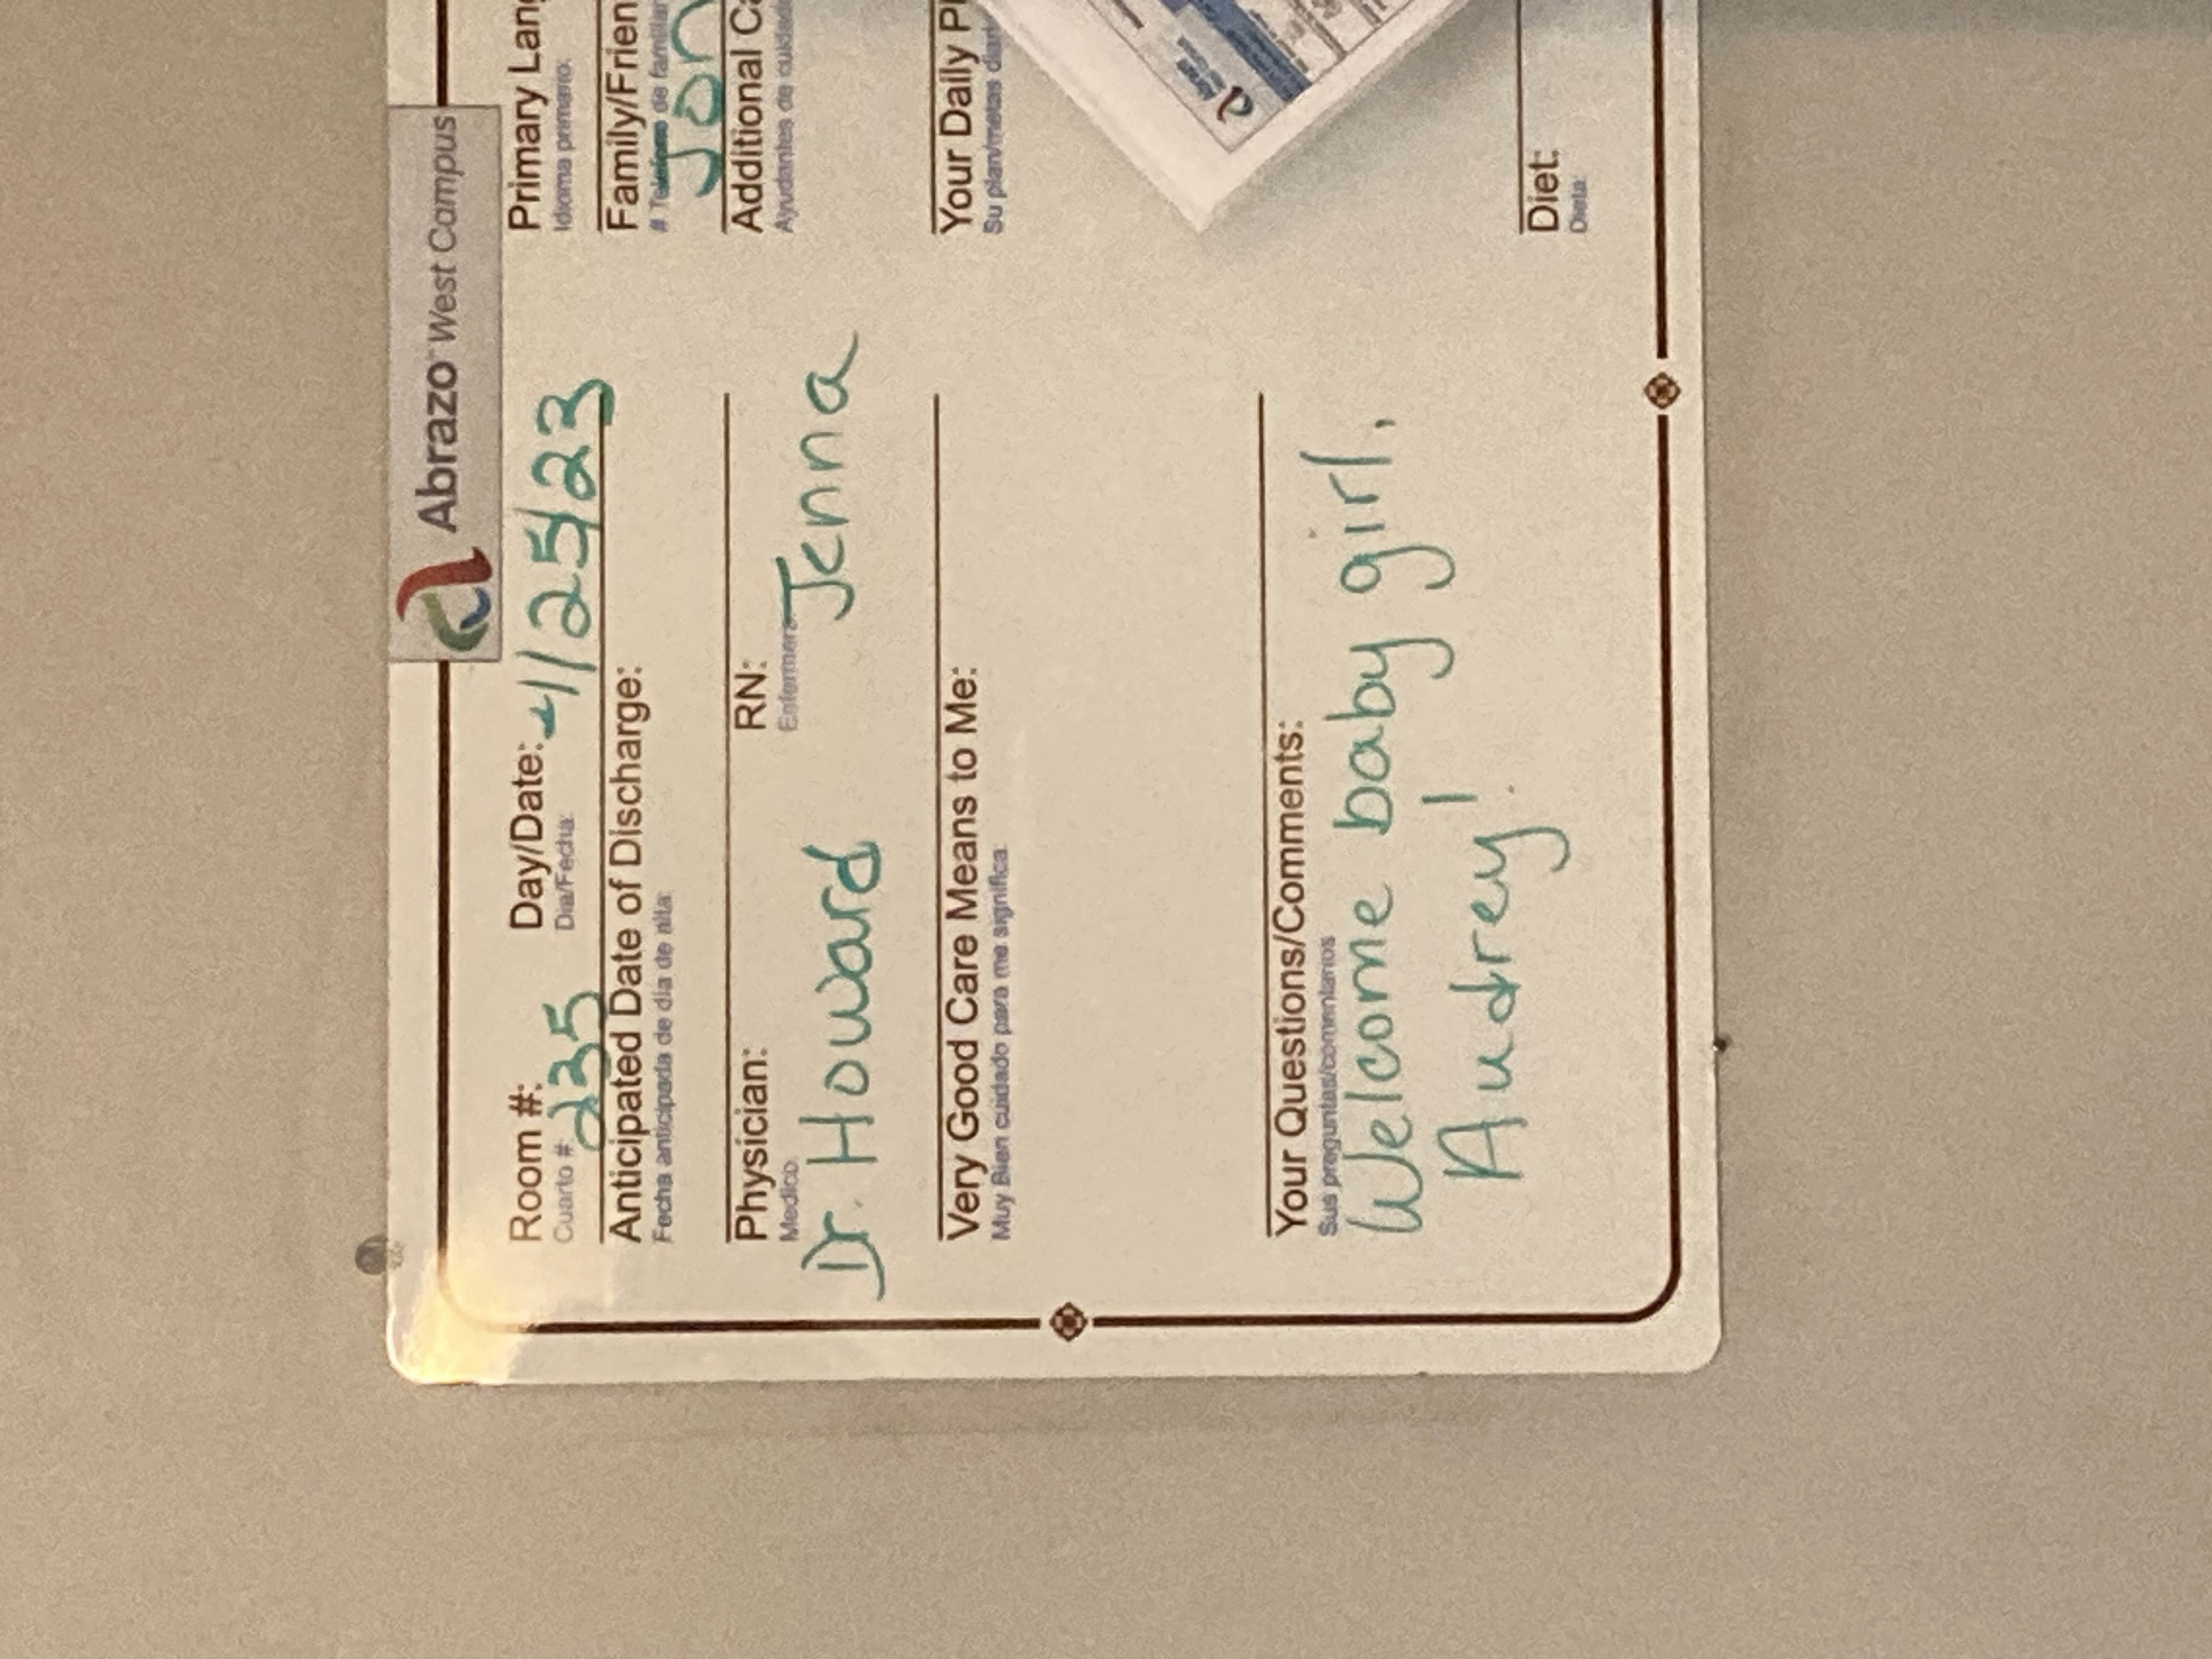 Abrazo West Campus
Room #: Day/Date:
Cuarto #: 235 Dia/Fecha: 4/25/23
Anticipated Date of Discharge:
Fecha anticipada de dia de alta:
Physician: RN:
Medico: Enfermera:
Dr. Howard Jenna
Very Good Care Means to Me:
Muy Bien cuidado para me significa:
Your Questions/Comments:
Sus preguntas/comentarios
Welcome baby girl,
Audrey!
Primary Lang
Idioma primario:
Family/Frien
# Telefono de familiar
Jon
Additional Ca
Ayudantes de cuidado
Your Daily Pl
Su plan/metas diari
Abrazo
Diet:
Dieta: